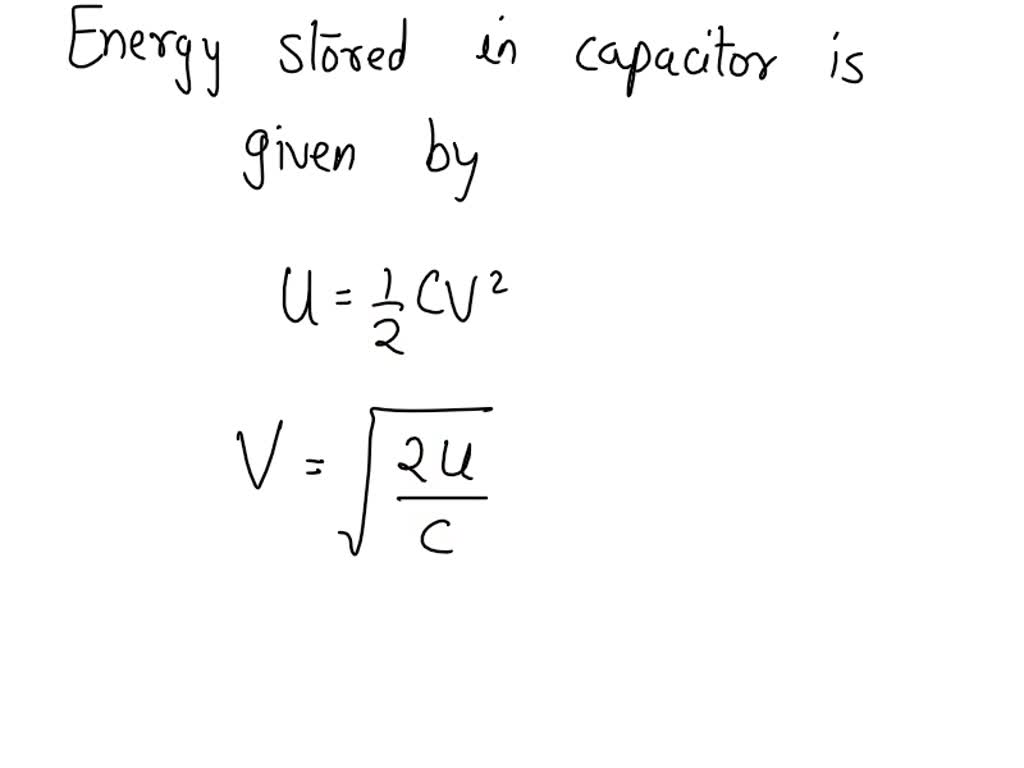 Energy stored in capacitor is
given by
U = 1/2 CV²
V = √(2U/C)